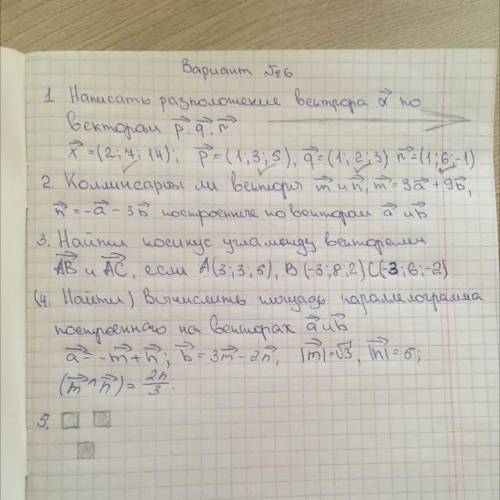 Вариант №6
1 Написать разположение вектора x⃗ по
векторам p⃗. q⃗. r⃗
x⃗=(2;7;14); p⃗=(1,3;5), q⃗=(1;2;3) r⃗=(1;6;-1)
2. Коллинеарны ли векторы m⃗ и n⃗, m⃗=3a⃗+9b⃗,
n⃗=-a⃗-3b⃗ построенные по векторам a⃗ и b⃗
3. Найти косинус угла между векторами
AB⃗ и AC⃗, если A(3;3;5), B(-3;8;2) C(-3;6;-2)
(4. Найти) Вычислить площадь параллелограмма
построенного на векторах a⃗ и b⃗
a⃗=-m⃗+n⃗; b⃗=3m⃗-2n⃗, |m⃗|=√3, |n⃗|=6;
(m⃗^n⃗)=2π/3.
5.